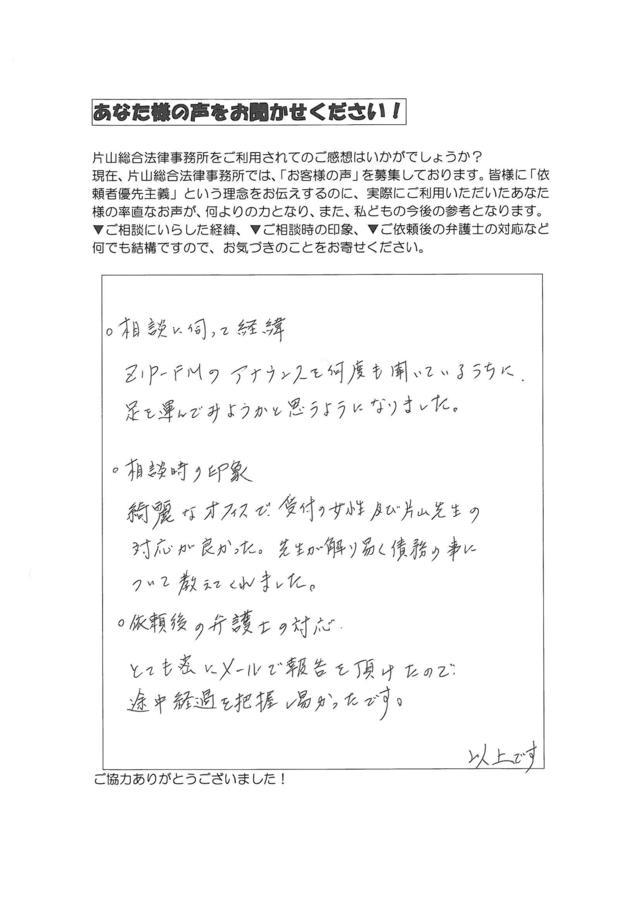 あなた様の声をお聞かせください！
片山総合法律事務所をご利用されてのご感想はいかがでしょうか？
現在、片山総合法律事務所では、「お客様の声」を募集しております。皆様に「依
頼者優先主義」という理念をお伝えするのに、実際にご利用いただいたあなた
様の率直なお声が、何よりの力となり、また、私どもの今後の参考となります。
▼ご相談にいらした経緯、▼ご相談時の印象、▼ご依頼後の弁護士の対応など
何でも結構ですので、お気づきのことをお寄せください。
○相談に伺って経緯
ZIP-FMのアナウンスを何度も聞いているうちに、
足を運んでみようかと思うようになりました。
○相談時の印象
綺麗なオフィスで、受付の女性及び片山先生の
対応が良かった。先生が解り易く債務の事に
ついて教えてくれました。
○依頼後の弁護士の対応
とても密にメールで報告を頂けたので
途中経過を把握し易かったです。
以上です
ご協力ありがとうございました！